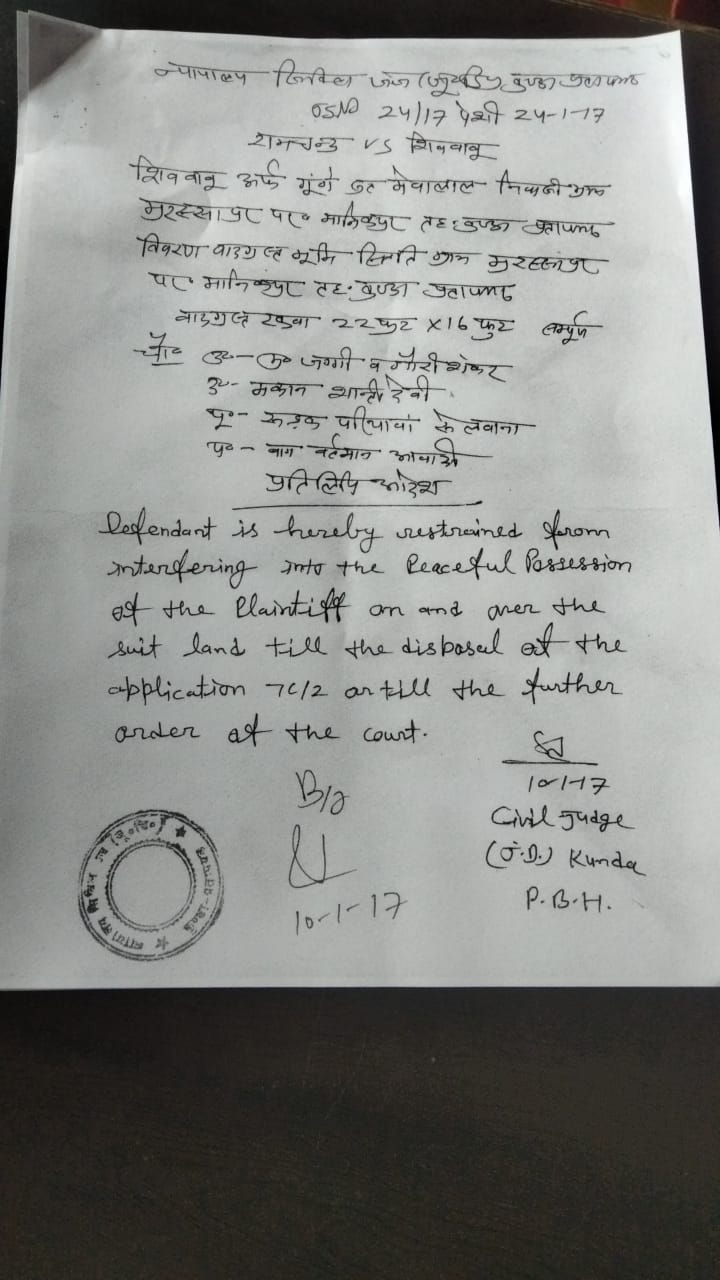 न्यायालय सिविल जज (जू०डि०) कुण्डा प्रतापगढ़
OSNO 24/17 पेशी 24-1-17
रामचन्द्र VS शिवबाबू
शिवबाबू उर्फ गूंगे सुत मेवालाल निवासी ग्राम
पर० मानिकपुर तह० कुण्डा प्रतापगढ़
विवरण वादग्रस्त भूमि स्थिति ग्राम
पर० मानिकपुर तह० कुण्डा प्रतापगढ़
वादग्रस्त रकबा 22 फुट X 16 फुट सम्पूर्ण
चौ० जग्गी व गौरीशंकर
उ०- मकान शान्ती देवी
पू०- सड़क परियावां से लवाना
प०- बाग वर्तमान आबादी
प्रतिलिपि आदेश
Defendant is hereby restrained from
interfering into the Peaceful Possession
of the Plaintiff on and over the
suit land till the disposal of the
application 7C/2 or till the further
order of the court.
10-1-17
Civil Judge
(J.D.) Kunda
P.B.H.
10-1-17